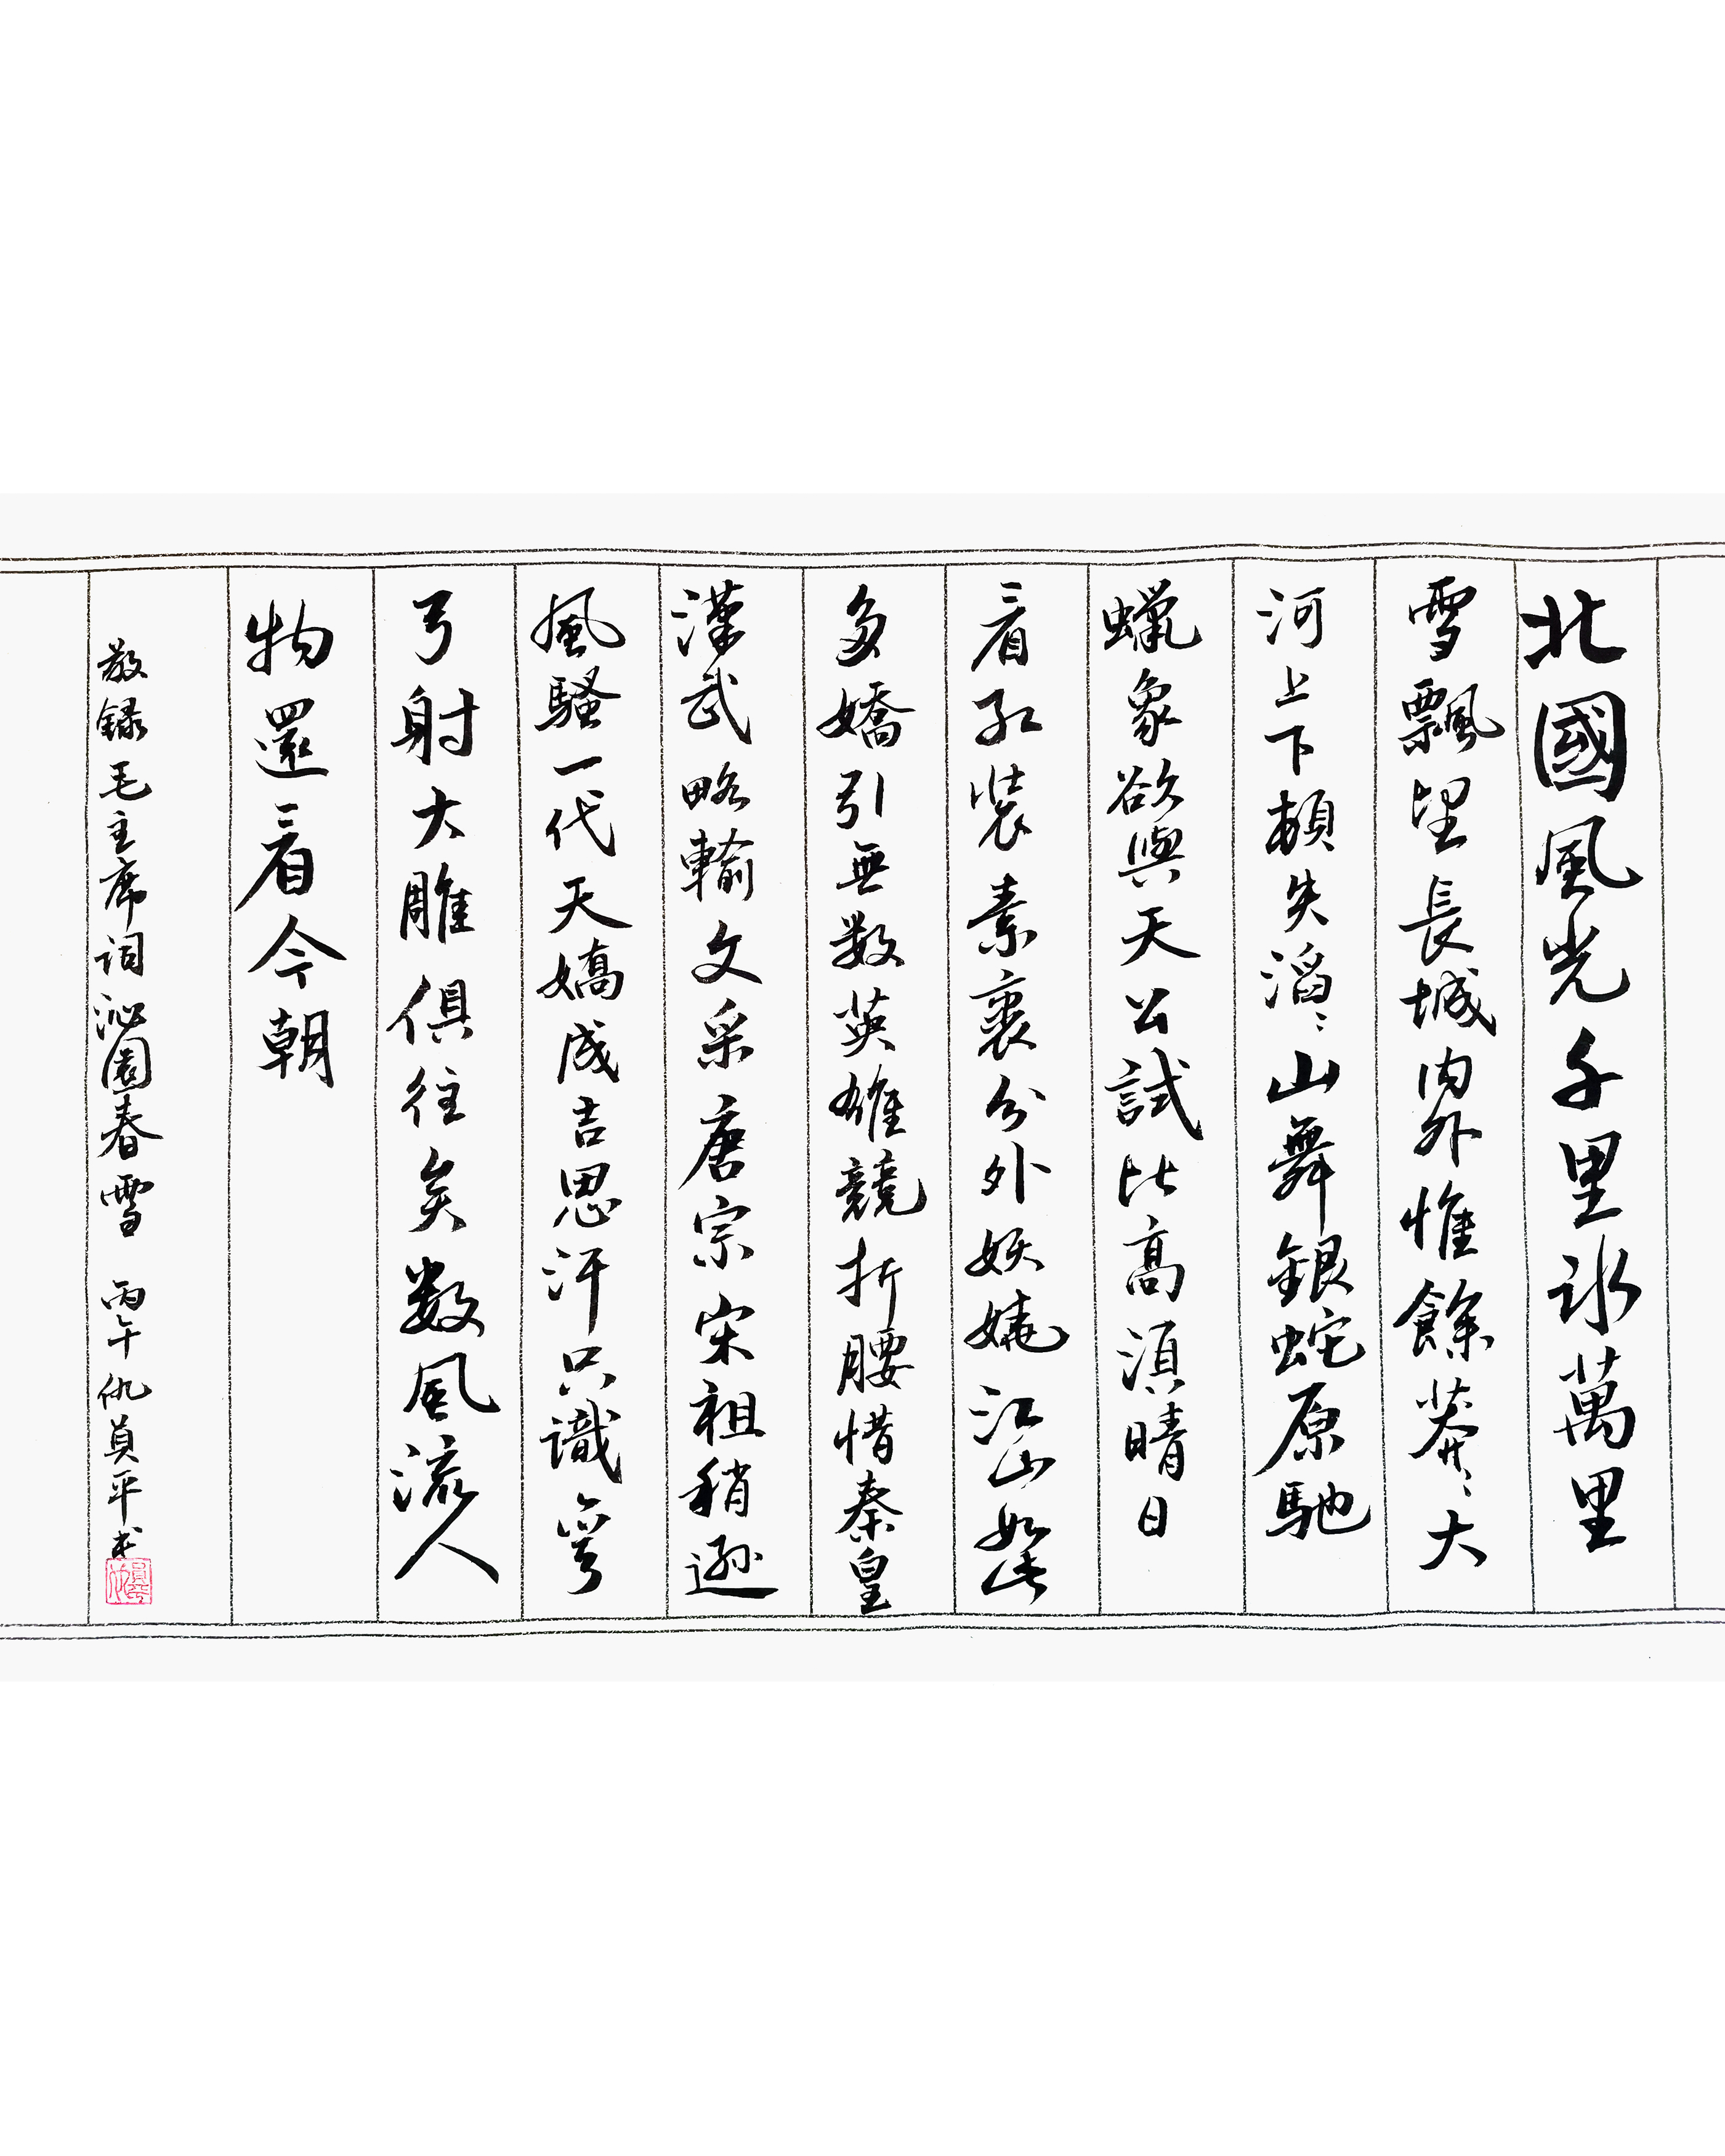 北國風光千里冰萬里
雪飄望長城内外惟餘莽々大
河上下頓失滔々山舞銀蛇原馳
蠟象欲與天公試比高須晴日
看紅裝素裹分外妖嬈江山如此
多嬌引無数英雄競折腰惜秦皇
漢武略輸文采唐宗宋祖稍遜
風騷一代天嬌成吉思汗只識彎
弓射大雕俱往矣数風流人
物還看今朝
敬録毛主席詞沁園春雪 丙午仇貞平书